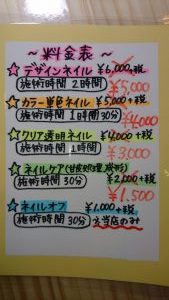 ～料金表～
☆デザインネイル ¥6,000+税
施術時間 2時間 ¥5,000
☆カラー単色ネイル ¥5,000+税
施術時間 1時間30分 ¥4,000
☆クリア透明ネイル ¥4,000+税
施術時間 1時間 ¥3,000
☆ネイルケア(甘皮処理、成形)
施術時間 30分 ¥2,000+税
¥1,500
☆ネイルオフ ¥1,000+税
施術時間 30分 ※当店のみ